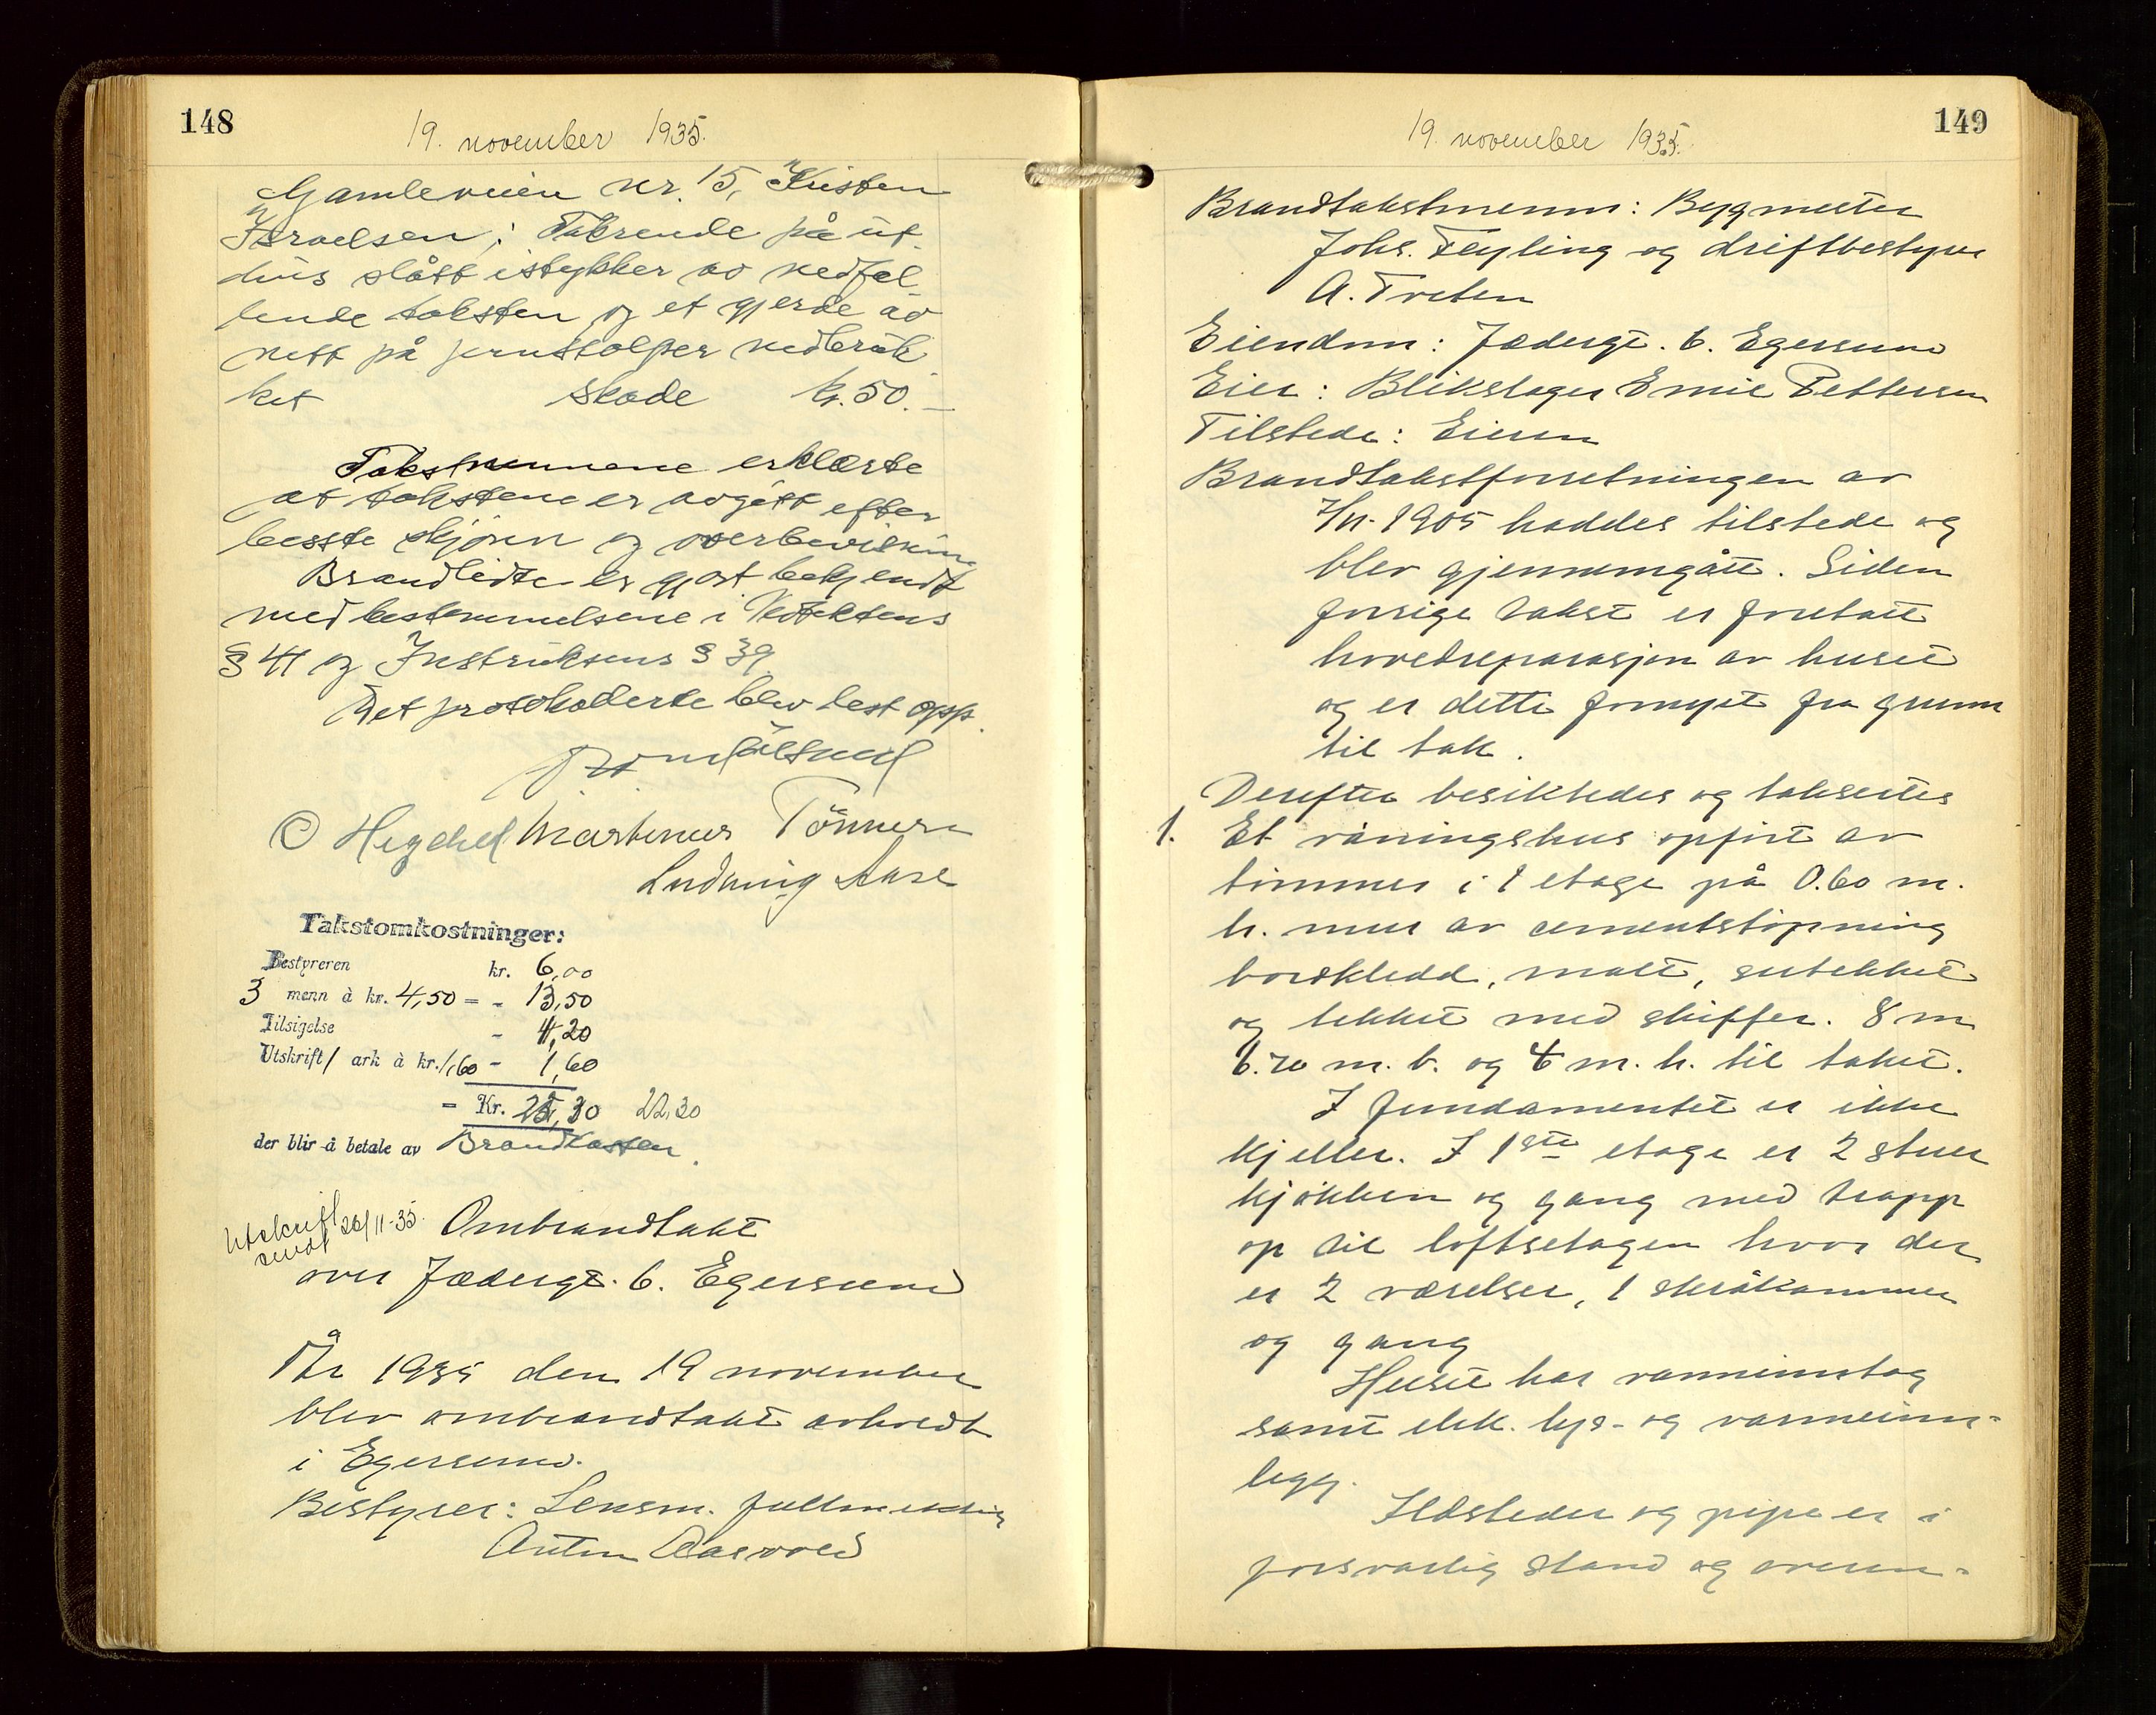 148
19. november 1935.
Gamleveien nr. 15, Kristen
Israelsen; Takrende på ut-
hus slått istykker av nedfal-
lende taksten og et gjerde av
nett på jernstolper nedbrük-
ket skade kr. 50.-
Takstmennene erklærte
at takstene er avgitt efter
beste skjønn og overbevisning
Brandlidte er gjort bekjendt
med bestemmelsene i
§ 41 og Instruksens § 39
Det protokollerte blev lest opp.
Martinus Tönnesen
Ludvig Aase
Takstomkostninger:
Bestyreren kr. 6,00
3 menn à kr. 4,50 = - 13,50
Tilsigelse - 4,20
Utskrift 1 ark à kr. 1,60 - 1,60
- Kr. 25,30 22,30
der blir å betale av Brandkassen.
Utskrift
sendt 26/11-35.
Ombrandtakst
over Jæderegt. 6. Egersund
År 1935 den 19 november
blev ombrandtakst avholdt
i Egersund.
Bestyrer: Lensm. fullmektig
Anton Aarvold
149
19. november 1935.
Brandtakstmenn: Bygmester
Johs. Feyling og driftbestyrer
A. Treten
Eiendom: Jæderegt. 6. Egersund
Eier: Blikslager Emil Pettersen
Tilstede: Eieren
Brandtakstforretningen av
7/11-1905 haddes tilstede og
blev gjennemgått. Siden
forrige takst er foretatt
hovedreparasjon av huset
og er dette fornyet fra grunn
til tak.
Derefter besiktedes og takseres
1. Et våningshus opført av
tømmer i 1 etage på 0.60 m.
h. mur av cementstøpning
bordkledd, malt, sutekket
og tekket med skiffer. 8 m
6.70 m. b. og 4 m. h. til taket.
I fundamentet er ikke
kjeller. I 1ste etage er 2 stuer
kjøkken og gang med trapp
op til loftsetagen hvor der
er 2 værelser, 1 skråkammer
og gang
Huset har vanninntag
samt elek. lys- og varmeinn-
legg.
Ildsteder og pipe er i
forsvarlig stand og overen-